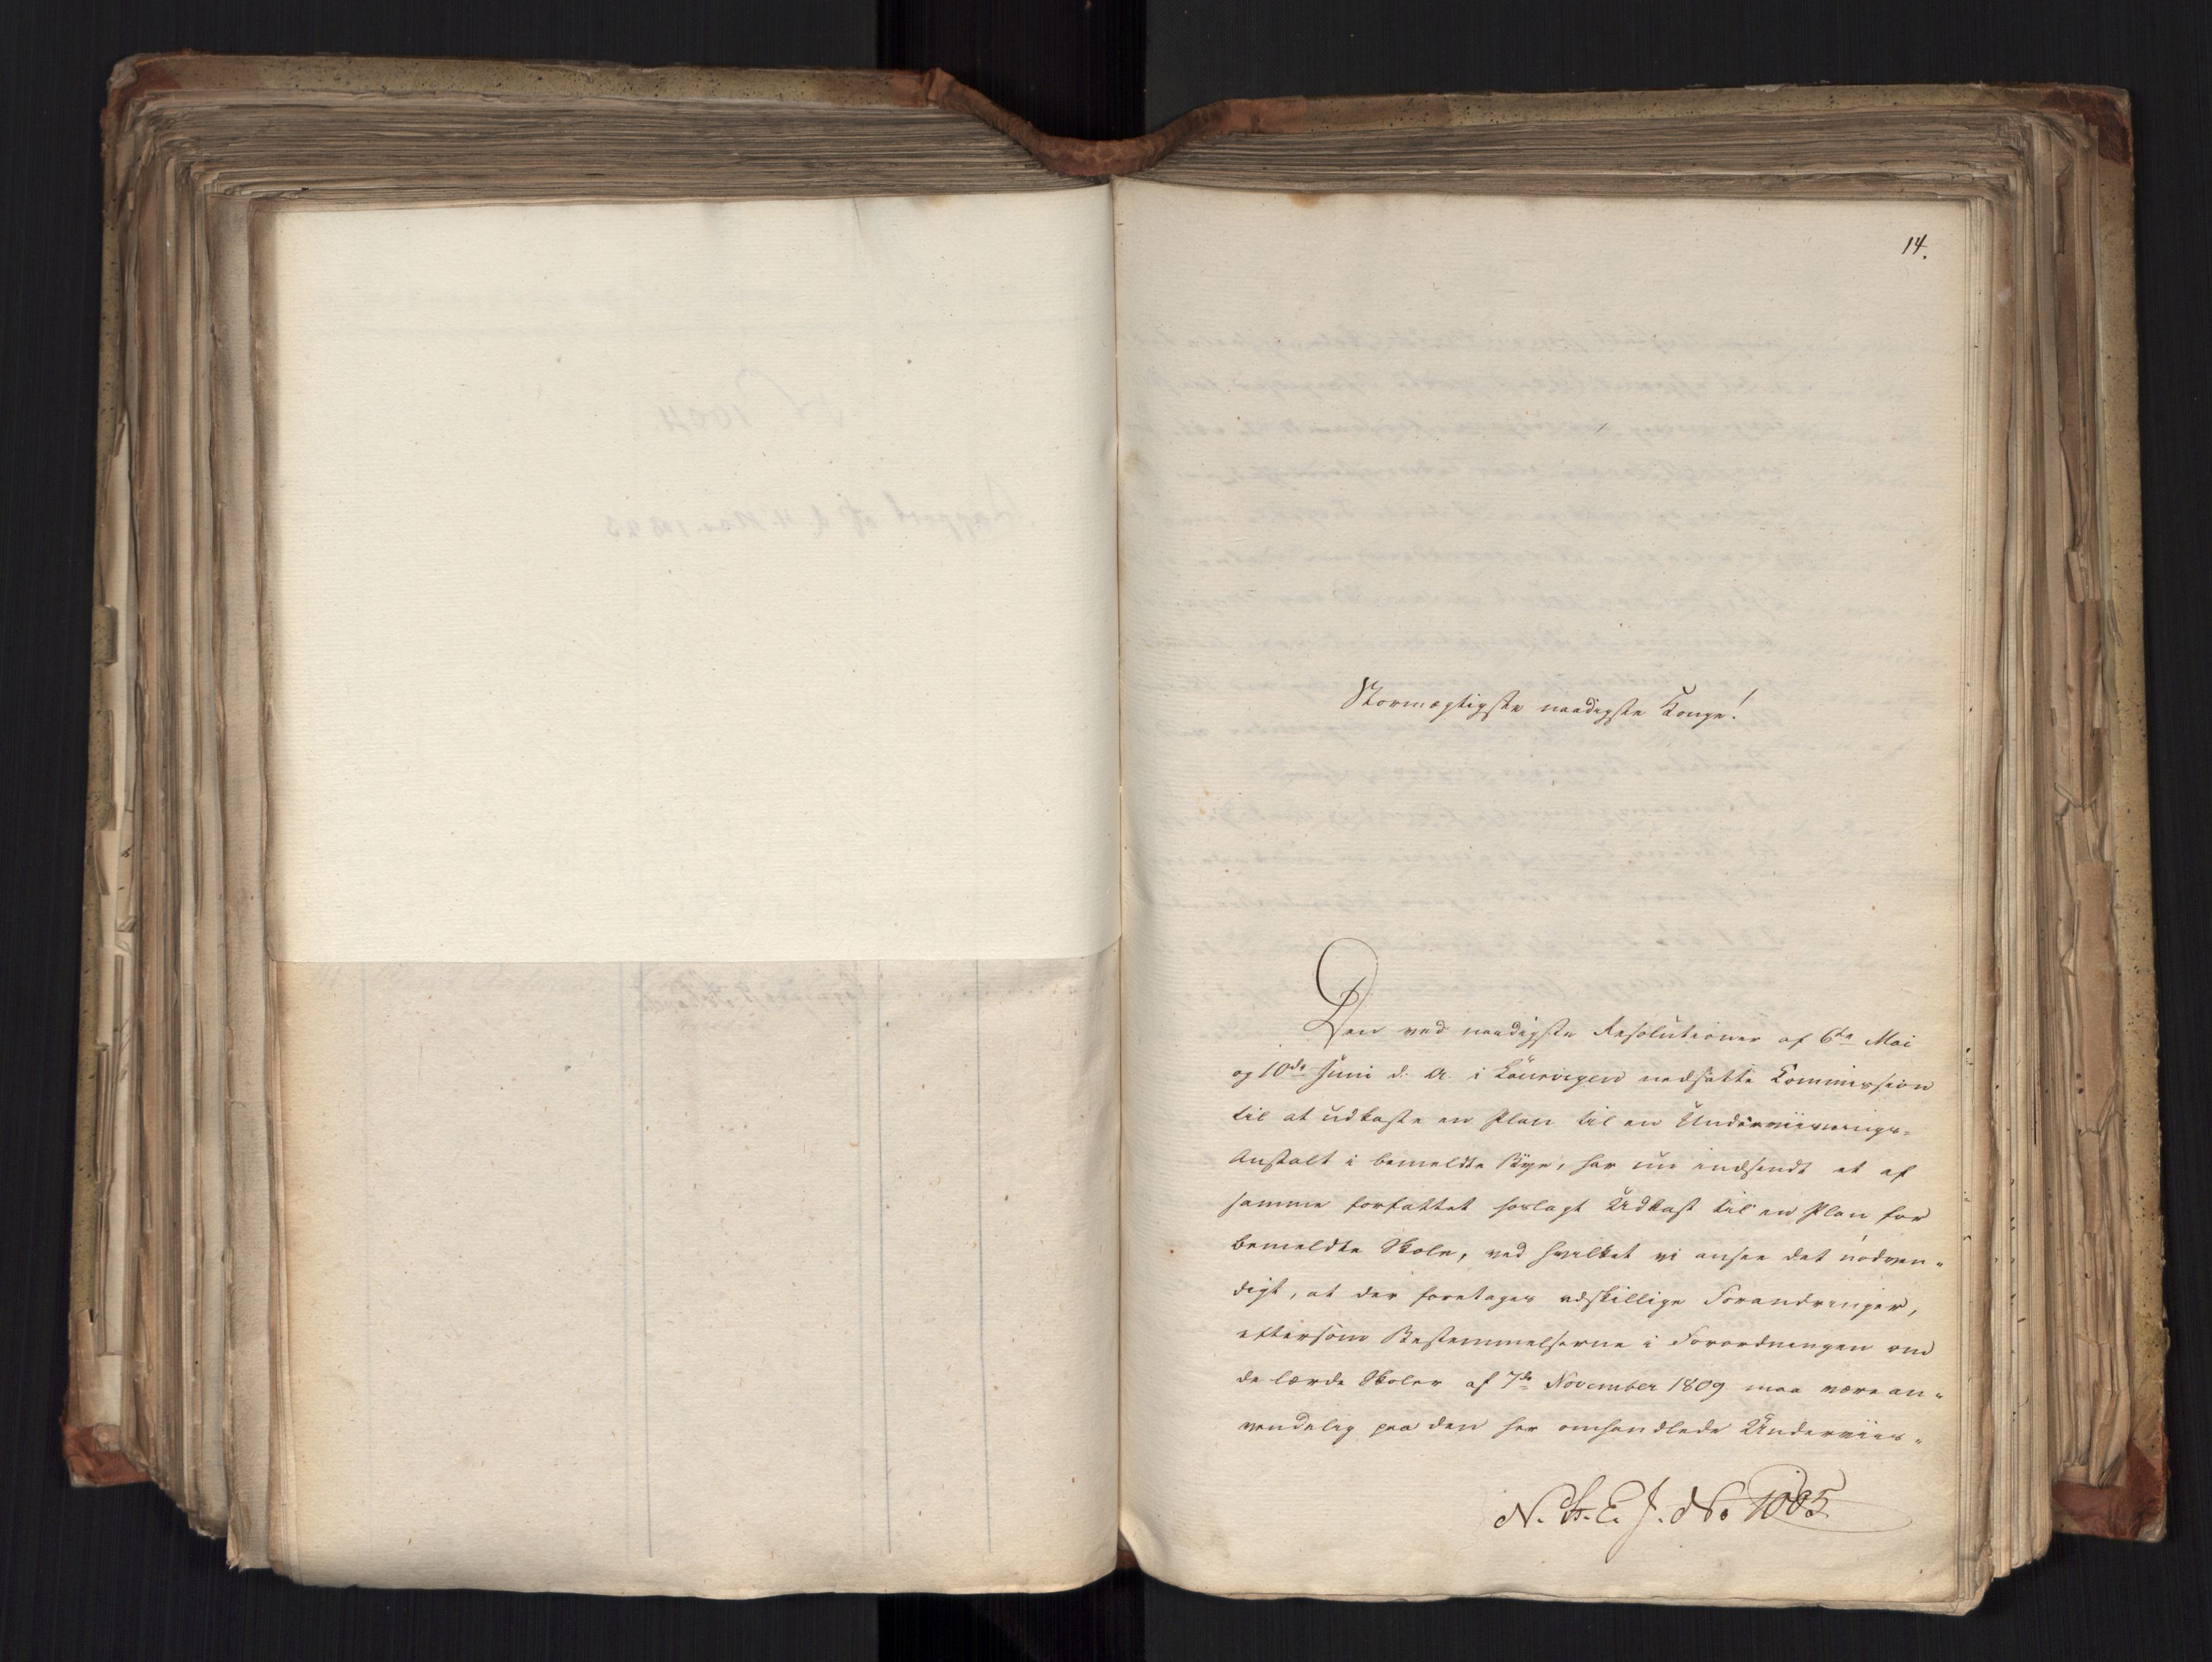 14.
Stormægtigste naadigste Konge!
Den ved naadigste Resolutioner af 6te Mai
og 10de Juni d. A. i Laurvigen nedsatte Kommission
til at udkaste en Plan til en Underviisnings-
Anstalt i bemeldte Bye, har nu indsendt et af
samme forfattet Udkast til en Plan for
bemeldte Skole, ved hvilket vi ansee det nödven-
digt, at der foretages adskillige Forandringer,
eftersom Bestemmelserne i Forordningen om
de lærde Skoler af 7de November 1809 maa være an-
vendelig paa den her omhandlede Underviis-
N. J. No 1005